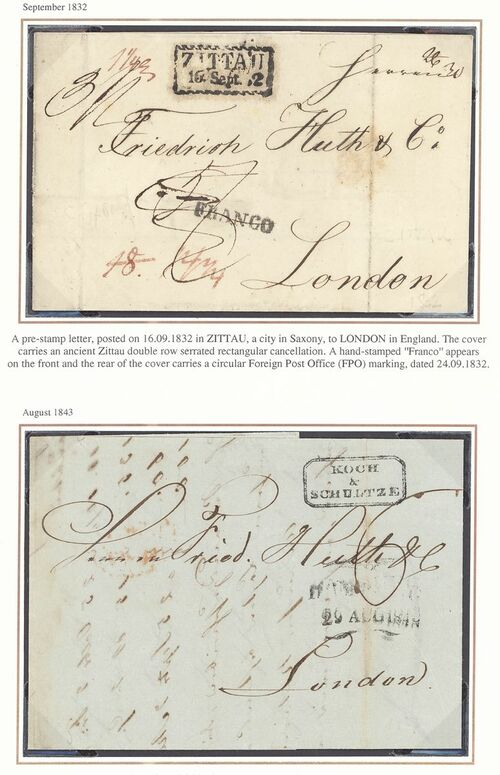 September 1832
ZITTAU
16. Sept. 32
Herren
Friedrich Huth & Co.
FRANCO
48.
London
A pre-stamp letter, posted on 16.09.1832 in ZITTAU, a city in Saxony, to LONDON in England. The cover
carries an ancient Zittau double row serrated rectangular cancellation. A hand-stamped "Franco" appears
on the front and the rear of the cover carries a circular Foreign Post Office (FPO) marking, dated 24.09.1832.
August 1843
KOCH
&
SCHULTZE
Fried. Huth & C
29 AUG
London